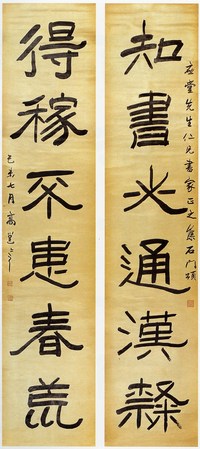 知書必通漢隸
堂先生仁兄書家正之 集石門頌
得稼不患春荒
己未七月 高邕之